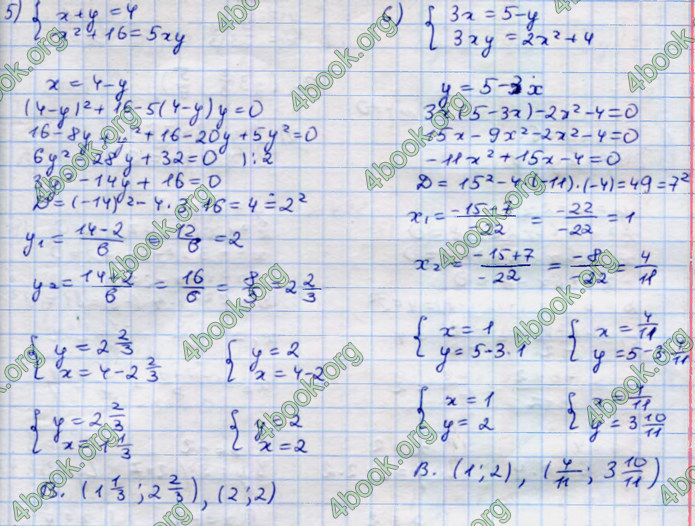 5) { x+y=4
x²+16=5xy
x=4-y
(4-y)²+16-5(4-y)y=0
16-8y+y²+16-20y+5y²=0
6y²-28y+32=0 ):2
3y²-14y+16=0
D=(-14)²-4·3·16=4=2²
y₁=(14-2)/6=12/6=2
y₂=(14+2)/6=16/6=8/3=2 2/3
{ y=2 2/3
x=4-2 2/3
{ y=2
x=4-2
{ y=2 2/3
x=1 1/3
{ y=2
x=2
В. (1 1/3; 2 2/3), (2;2)
6) { 3x=5-y
3xy=2x²+4
y=5-3x
3x(5-3x)-2x²-4=0
15x-9x²-2x²-4=0
-11x²+15x-4=0
D=15²-4·(-11)·(-4)=49=7²
x₁=(-15-7)/-22=-22/-22=1
x₂=(-15+7)/-22=-8/-22=4/11
{ x=1
y=5-3·1
{ x=4/11
y=5-3·4/11
{ x=1
y=2
{ x=4/11
y=3 10/11
В. (1;2), (4/11; 3 10/11)
4book.org